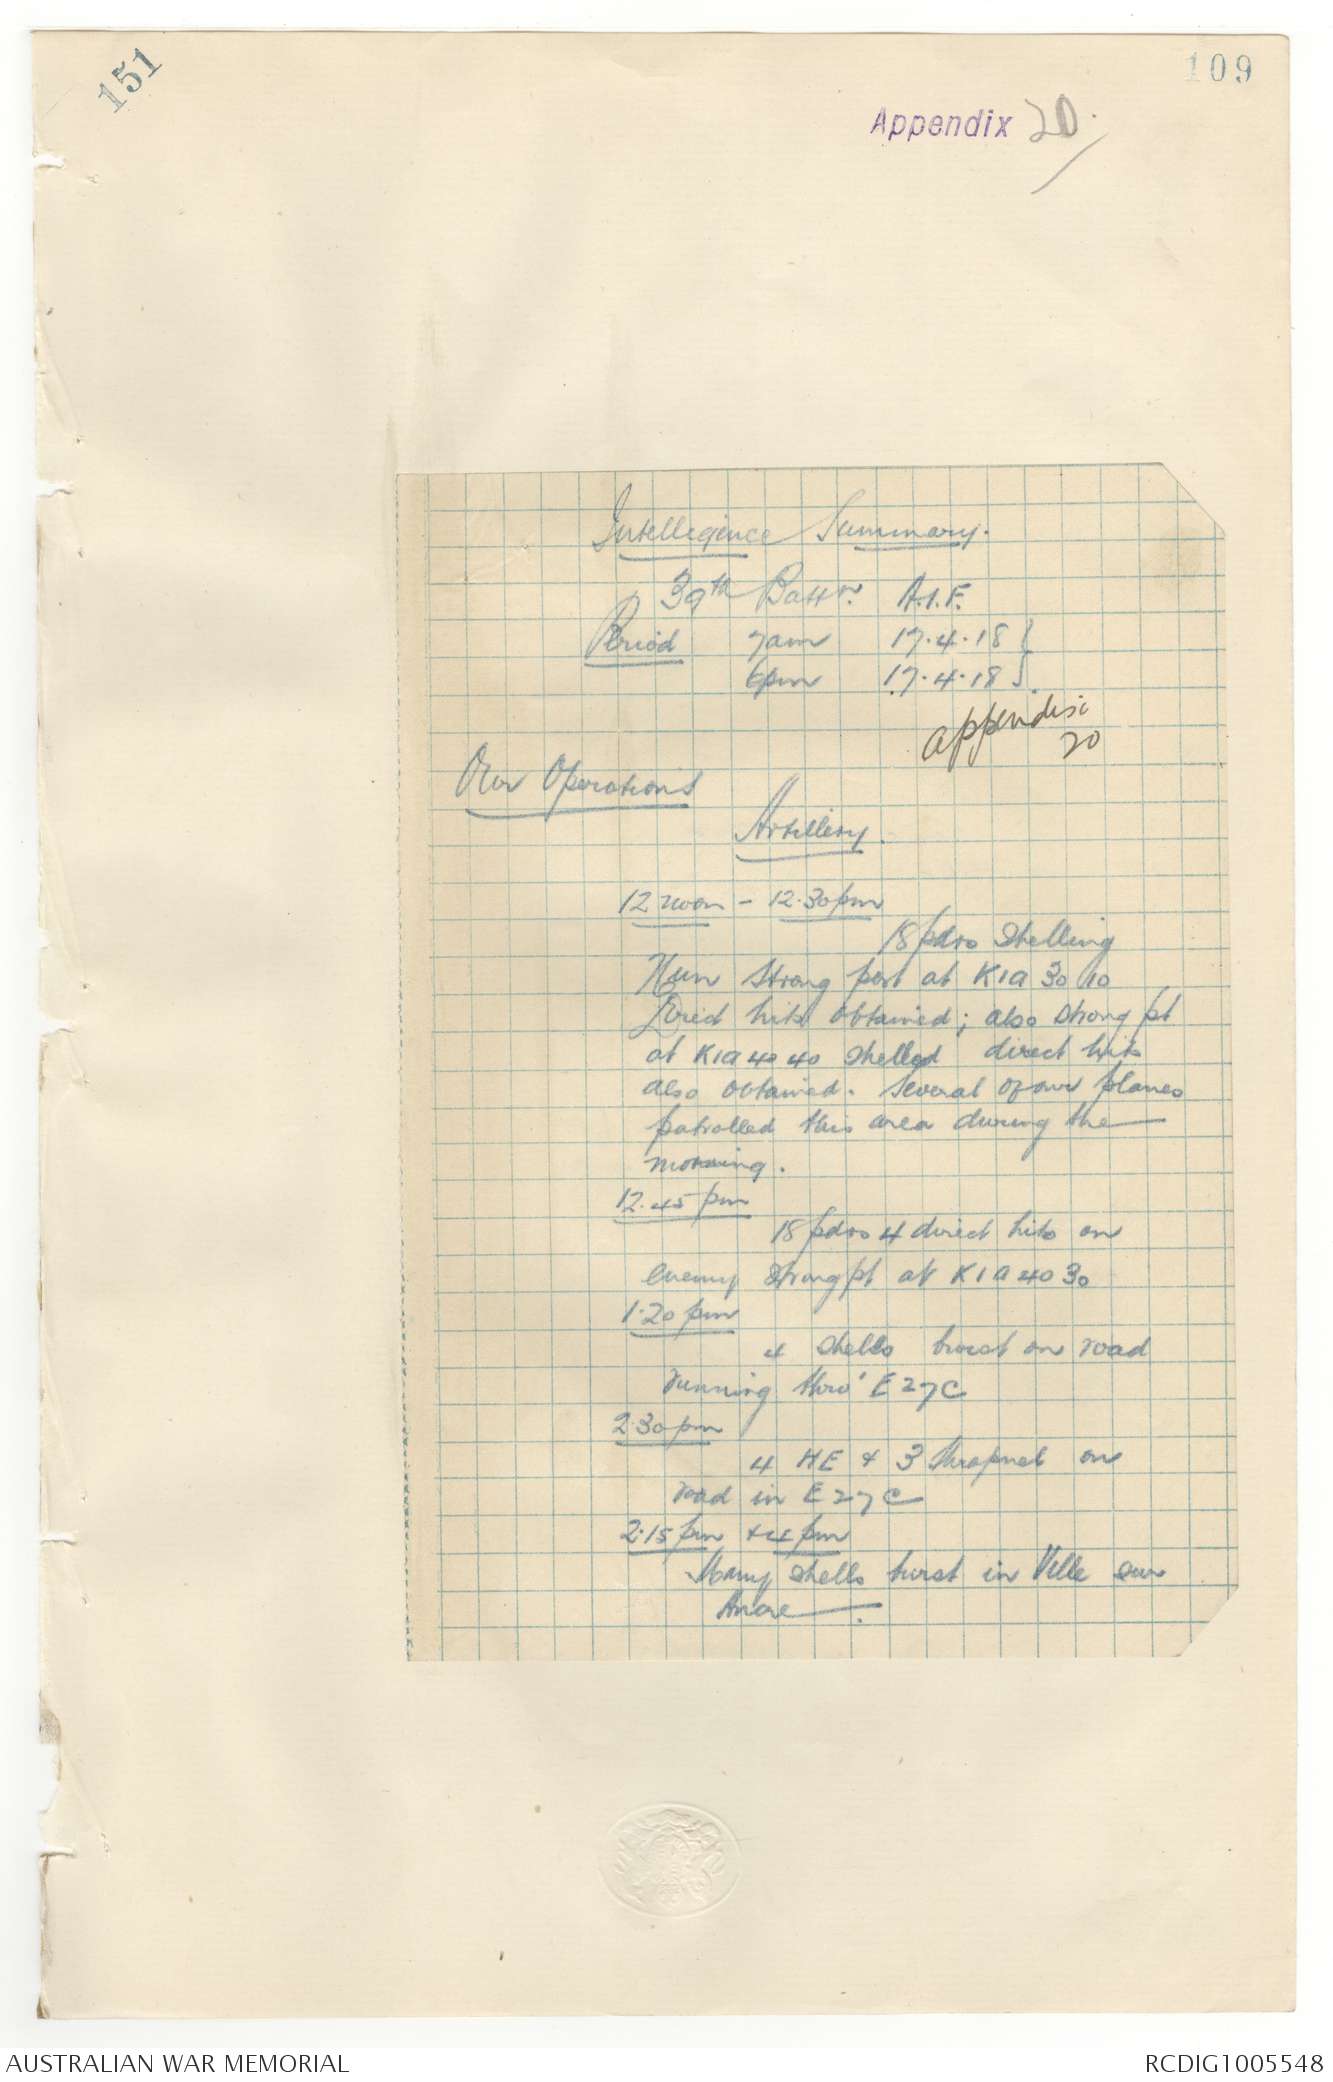 151
109
Appendix 20.
Intelligence Summary.
39th Battn. A.I.F.
Period 7am 17.4.18 }
6pm 17.4.18 }
appendix
20
Our Operations
Artillery.
12 noon - 12.30pm
18 pdrs Shelling
Hun Strong post at K1a 30 10
Direct hits obtained; also strong pt
at K1a 40 40 shelled direct hits
also obtained. Several of our planes
patrolled this area during the
morning.
12.45 pm
18 pdrs 4 direct hits on
enemy strong pt at K1a 40 30
1.20 pm
4 shells burst on road
running thro' E27C
2.30pm
4 HE & 3 Shrapnel on
road in E27C
2.15 pm & 4 pm
Many shells burst in Ville sur
Ancre.
AUSTRALIAN WAR MEMORIAL
RCDIG1005548